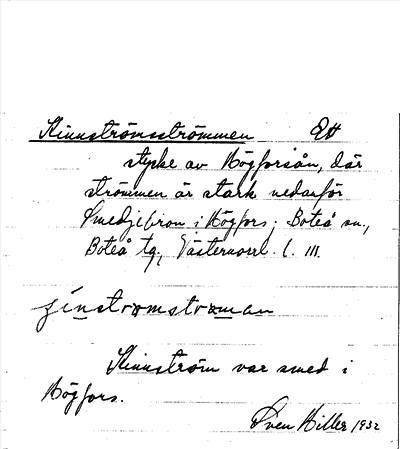 Kinnströmsströmmen Ett
stycke av Högforsån, där
strömmen är stark nedanför
Smedjebron i Högfors; Boteå sn,
Boteå tg, Västernorrl. l. III.
Kinnström var smed i
Högfors.
Sven Hiller 1932